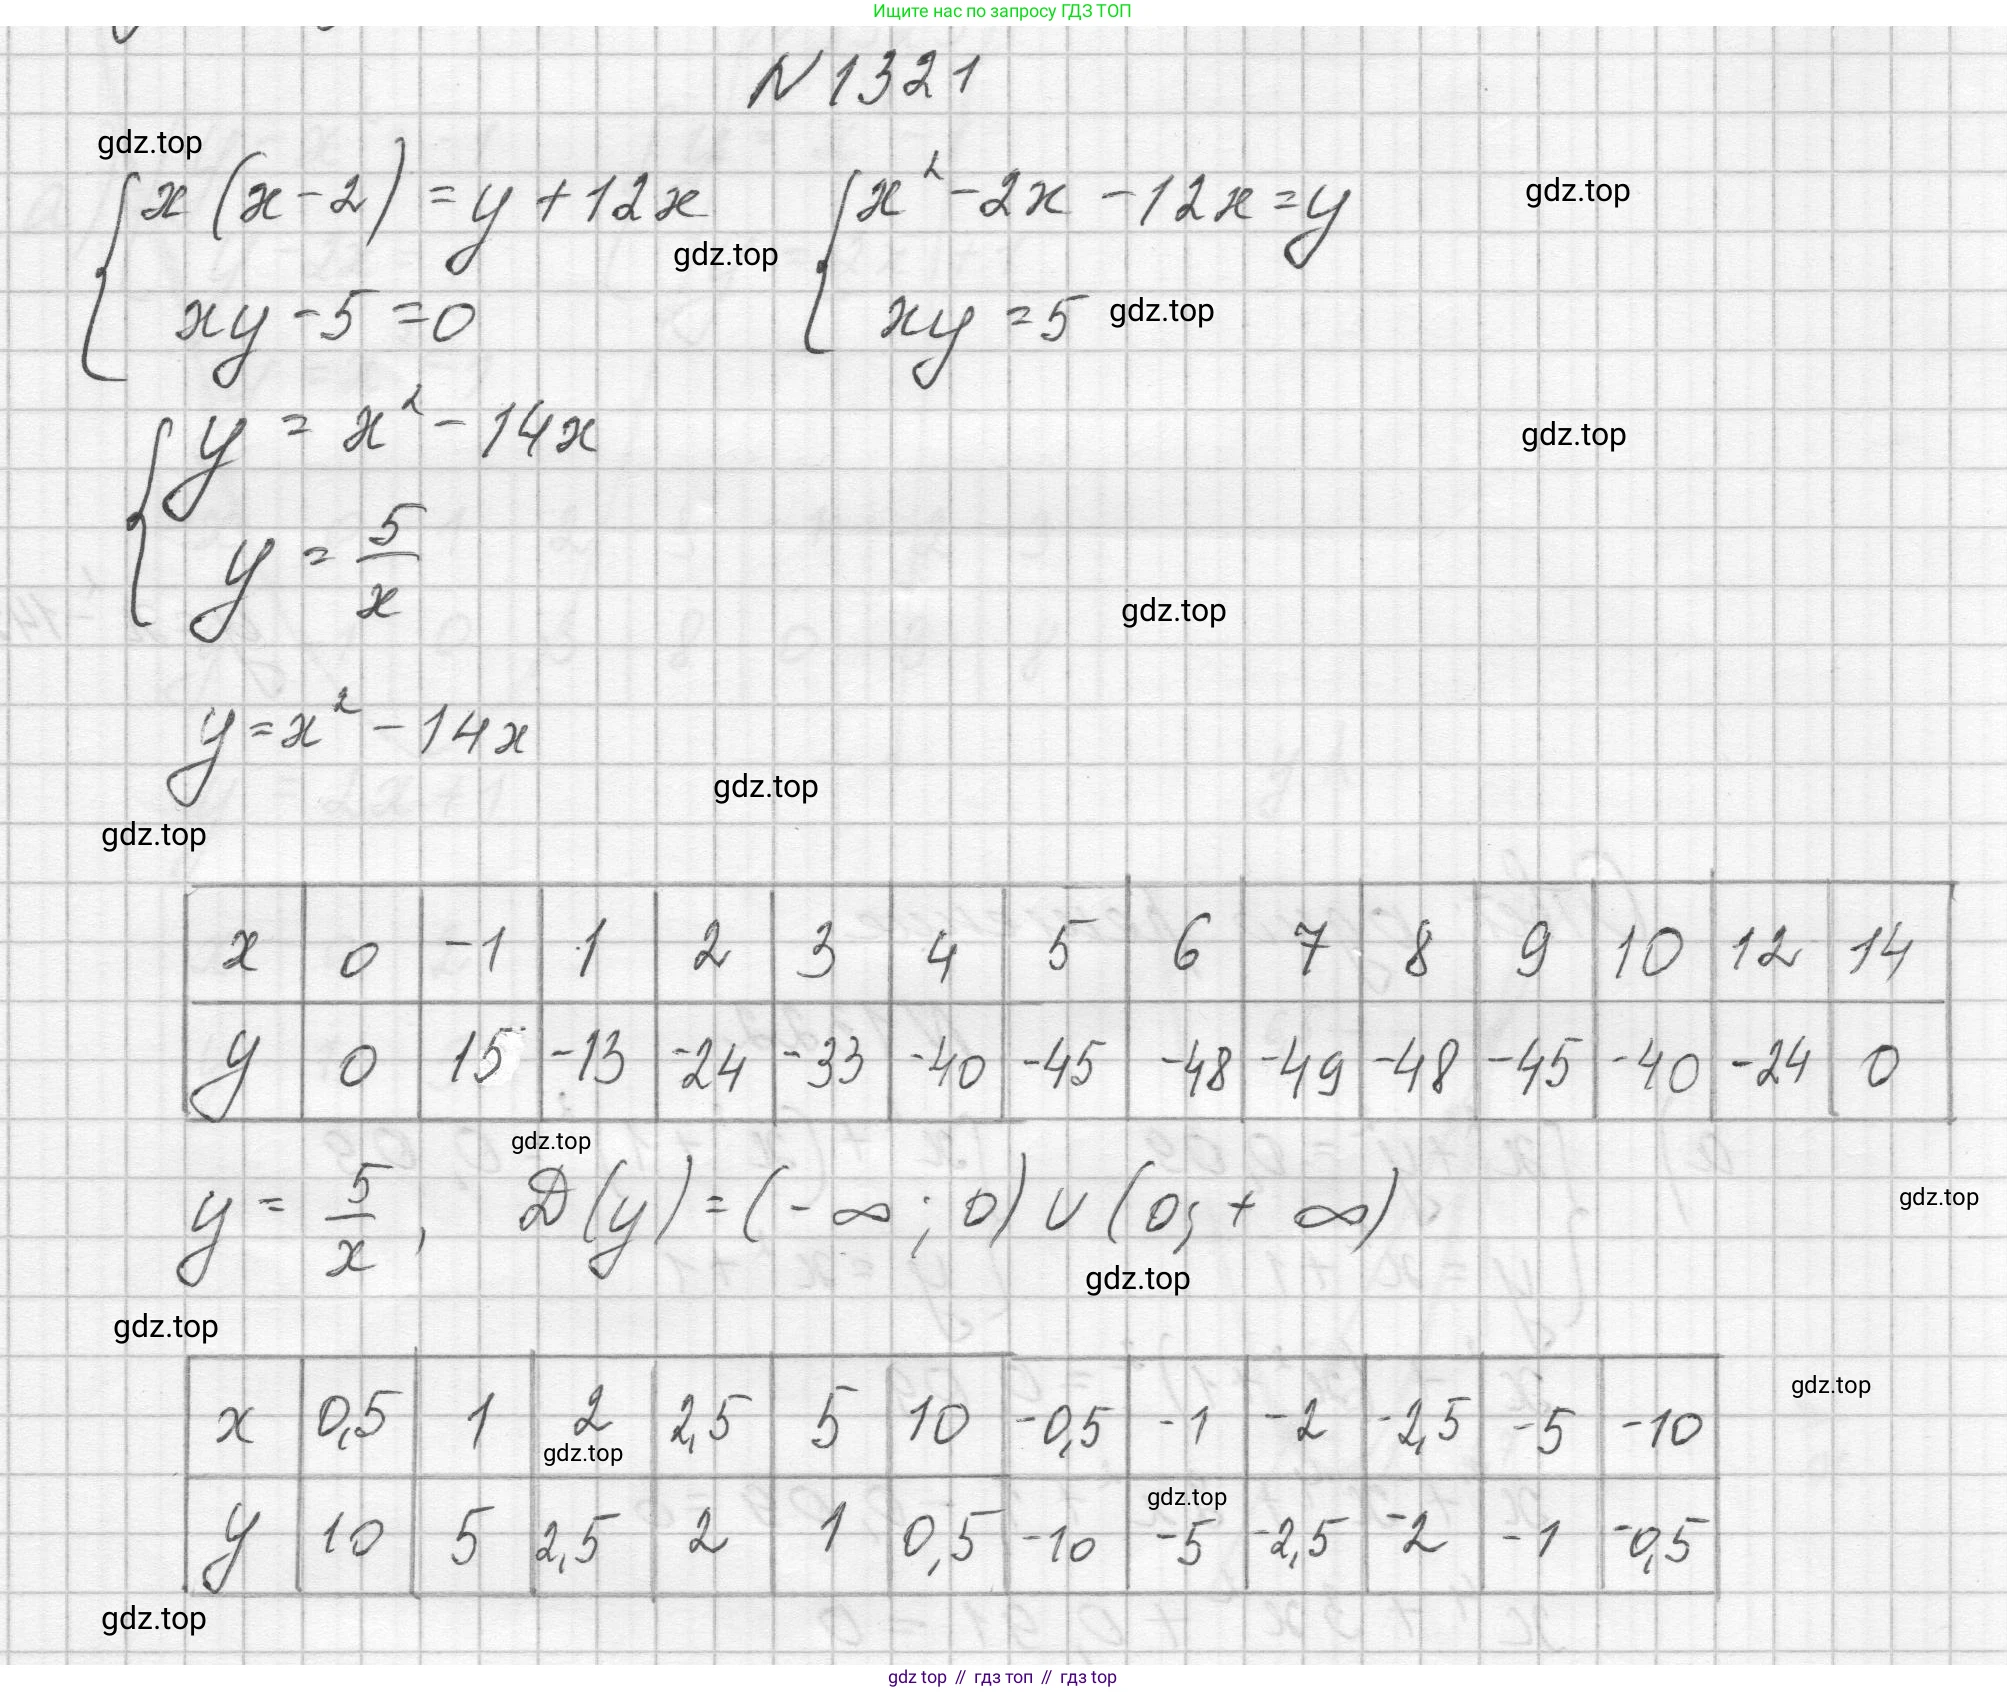 Ищите нас по запросу ГДЗ ТОП
N 1321
gdz.top
x(x-2) = y + 12x x² - 2x - 12x = y gdz.top
gdz.top
xy - 5 = 0 xy = 5 gdz.top
y = x² - 14x gdz.top
y = 5/x
gdz.top
y = x² - 14x
gdz.top
gdz.top
x 0 -1 1 2 3 4 5 6 7 8 9 10 12 14
y 0 15 -13 -24 -33 -40 -45 -48 -49 -48 -45 -40 -24 0
gdz.top
y = 5/x, D(y) = (-∞; 0) ∪ (0; +∞) gdz.top
gdz.top
gdz.top
gdz.top
x 0,5 1 2 2,5 5 10 -0,5 -1 -2 -2,5 -5 -10
gdz.top
gdz.top
y 10 5 2,5 2 1 0,5 -10 -5 -2,5 -2 -1 -0,5
gdz.top
gdz top // гдз топ // гдз top